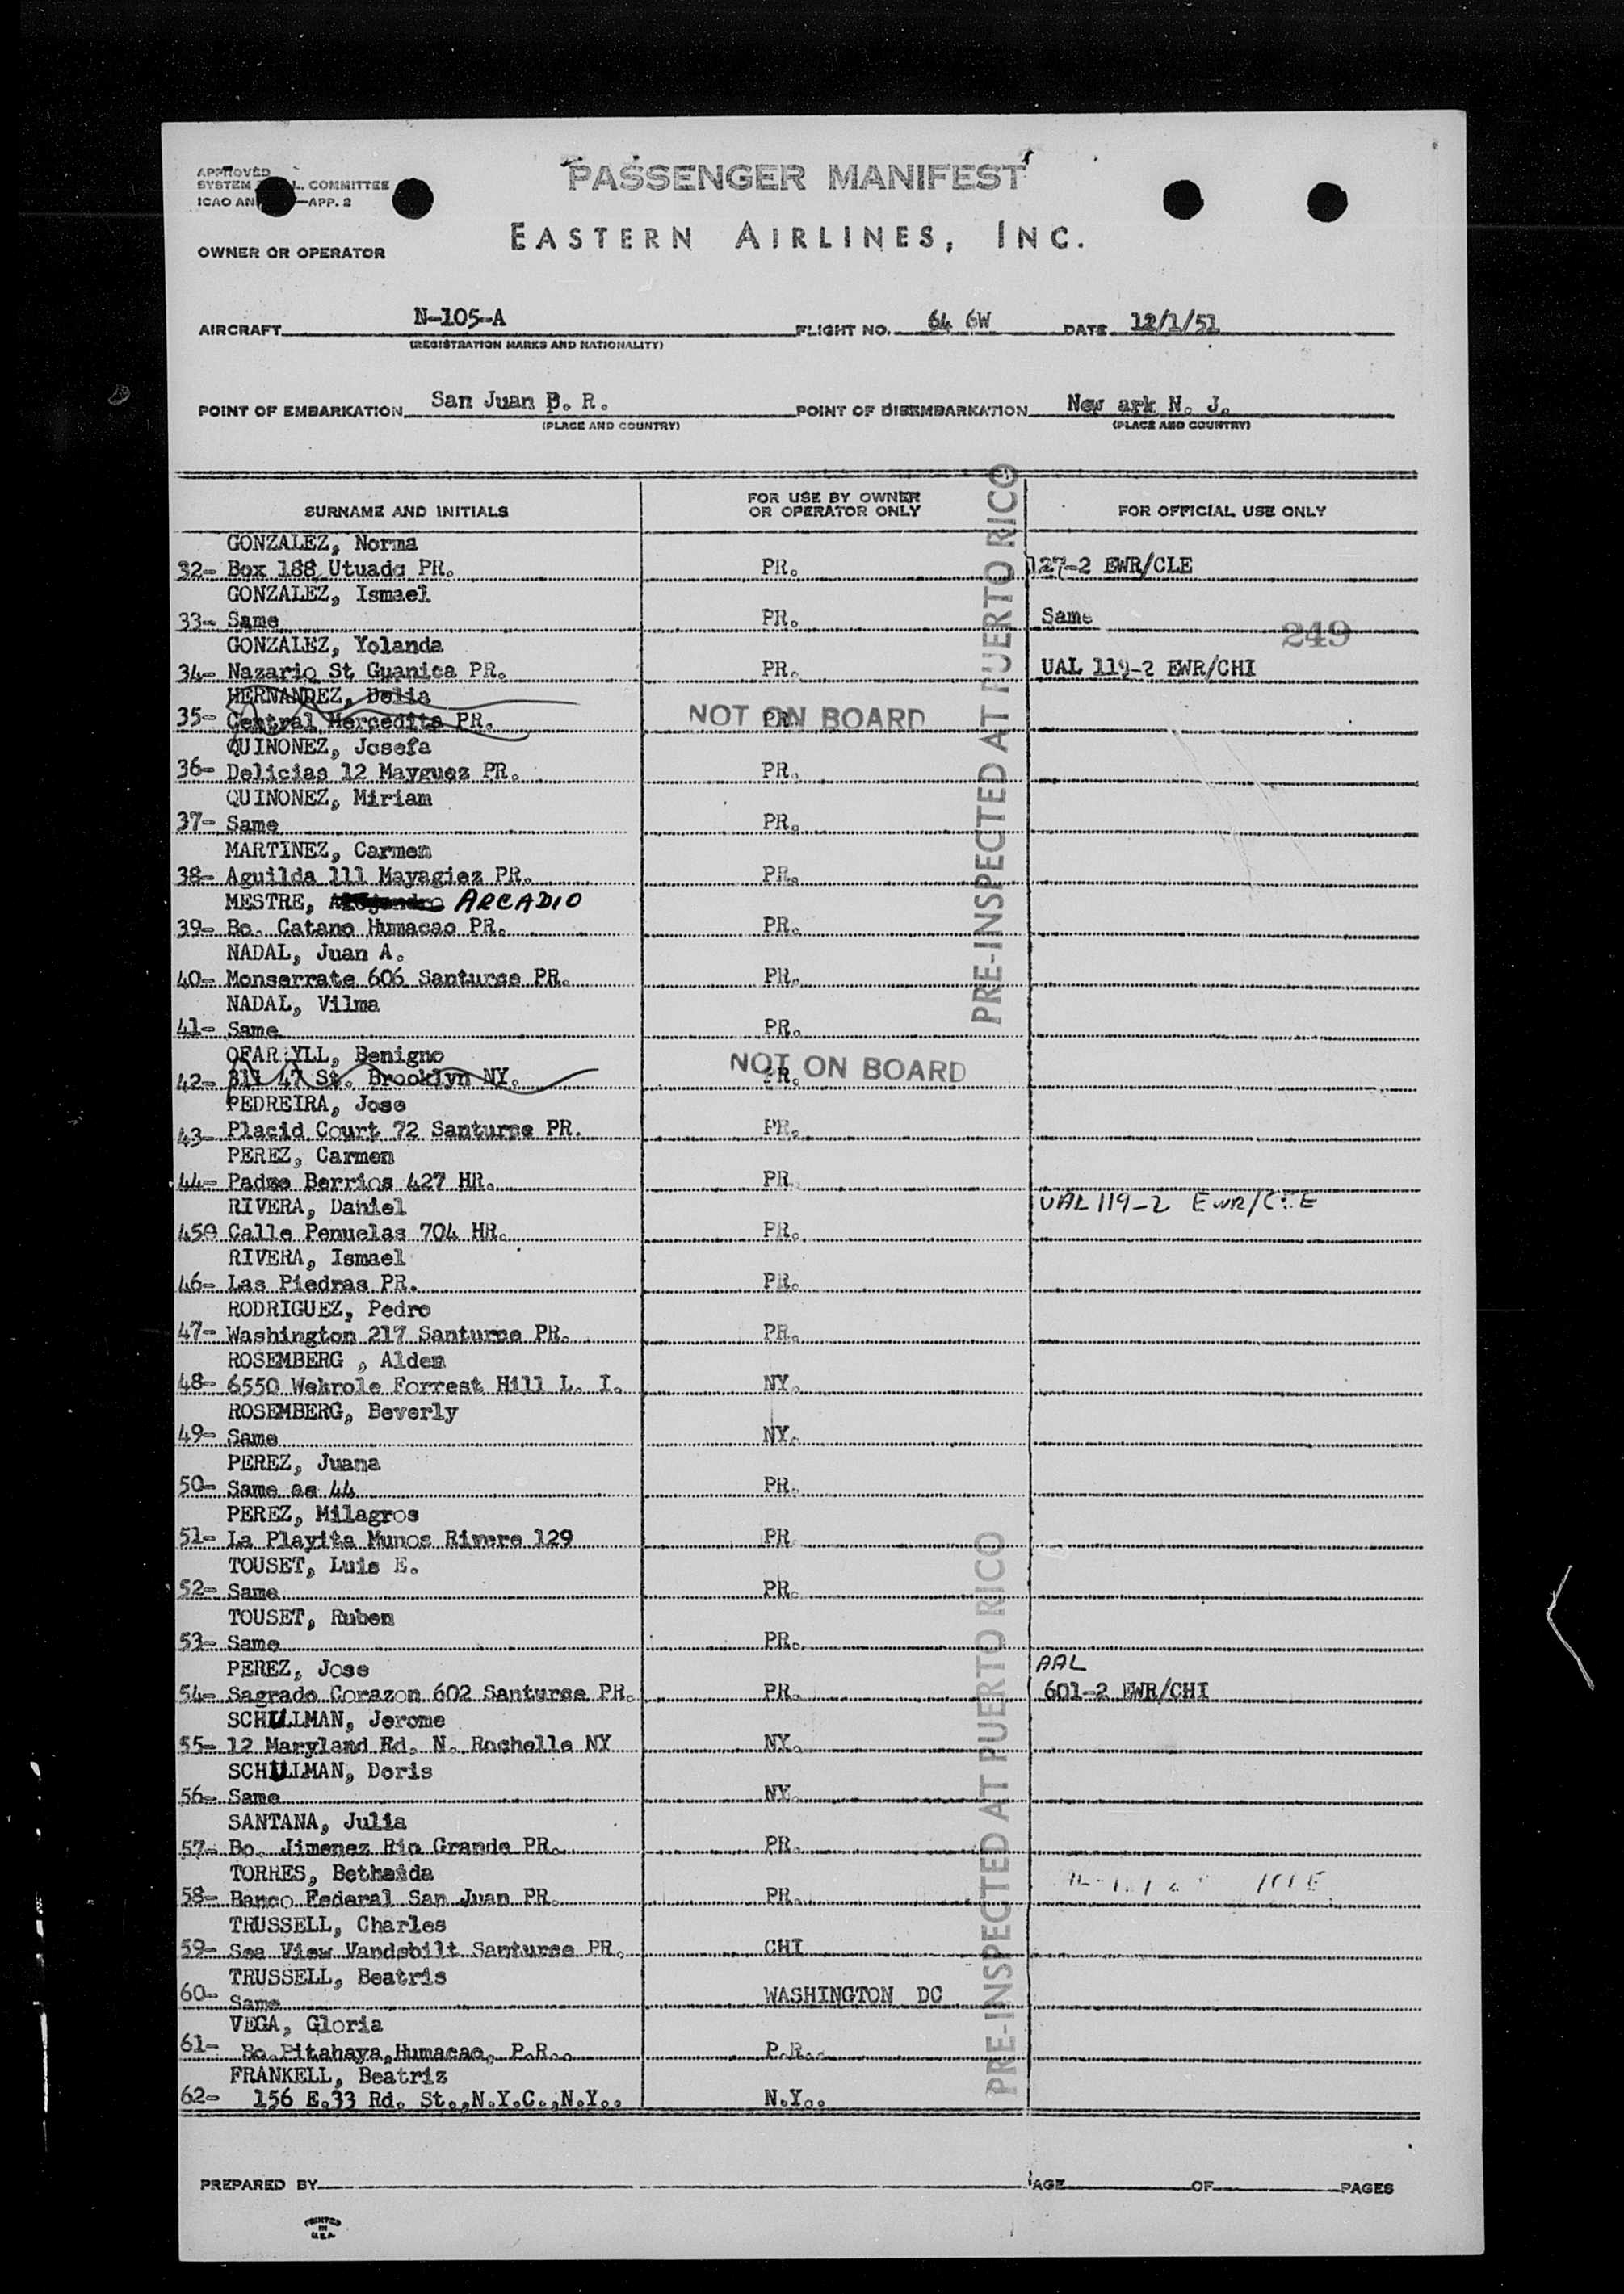 APPROVED
SYSTEM L. COMMITTEE
ICAO AN —APP. 2
PASSENGER MANIFEST
EASTERN AIRLINES, INC.
OWNER OR OPERATOR
AIRCRAFT N-105-A FLIGHT NO. 64 GW DATE 12/1/51
(REGISTRATION MARKS AND NATIONALITY)
POINT OF EMBARKATION San Juan P. R. POINT OF DISEMBARKATION New ark N. J.
(PLACE AND COUNTRY) (PLACE AND COUNTRY)
SURNAME AND INITIALS FOR USE BY OWNER OR OPERATOR ONLY FOR OFFICIAL USE ONLY
GONZALEZ, Norma
32- Box 188 Utuado PR. PR. 127-2 EWR/CLE
GONZALEZ, Ismael
33- Same PR. Same
249
GONZALEZ, Yolanda
34- Nazario St Guanica PR. PR. UAL 119-2 EWR/CHI
HERNANDEZ, Delia
35- Central Mercedita PR. PR. NOT ON BOARD
QUINONEZ, Josefa
36- Delicias 12 Mayguez PR. PR.
QUINONEZ, Miriam
37- Same PR.
MARTINEZ, Carmen
38- Aguilda 111 Mayagiez PR. PR.
MESTRE, ARCADIO
39- Bo. Catano Humacao PR. PR.
NADAL, Juan A.
40- Monserrate 606 Santurce PR. PR.
NADAL, Vilma
41- Same PR.
Benigno
42- 811 47 St. Brooklyn NY. PR. NOT ON BOARD
PEDREIRA, Jose
43- Placid Court 72 Santurce PR. PR.
PEREZ, Carmen
44- Padre Berrios 427 HR. PR.
RIVERA, Daniel UAL 119-2 EWR/
450 Calle Penuelas 704 HR. PR.
RIVERA, Ismael
46- Las Piedras PR. PR.
RODRIGUEZ, Pedro
47- Washington 217 Santurce PR. PR.
ROSEMBERG , Alden
48- 6550 Wekrole Forrest Hill L. I. NY.
ROSEMBERG, Beverly
49- Same NY.
PEREZ, Juana
50- Same as 44 PR.
PEREZ, Milagros
51- La Playita Munos Rivera 129 PR.
TOUSET, Luis E.
52- Same PR.
TOUSET, Ruben
53- Same PR.
PEREZ, Jose AAL
54- Sagrado Corazon 602 Santurce PR. PR. 601-2 EWR/CHI
SCHULMAN, Jerome
55- 12 Maryland Rd. N. Rochelle NY NY.
SCHULMAN, Doris
56- Same NY.
SANTANA, Julia
57- Bo. Jimenez Rio Grande PR. PR.
TORRES, Bethsaida
58- Banco Federal San Juan PR. PR.
TRUSSELL, Charles
59- Sea View Vandebilt Santurce PR. CHI
TRUSSELL, Beatris
60- Same WASHINGTON DC
VEGA, Gloria
61- Bo.Pitahaya,Humacao, P.R.. P.R..
FRANKELL, Beatriz
62- 156 E.33 Rd. St.,N.Y.C.,N.Y.. N.Y..
PRE-INSPECTED AT PUERTO RICO
PRE-INSPECTED AT PUERTO RICO
PREPARED BY AGE OF PAGES
PRINTED
IN
U.S.A.